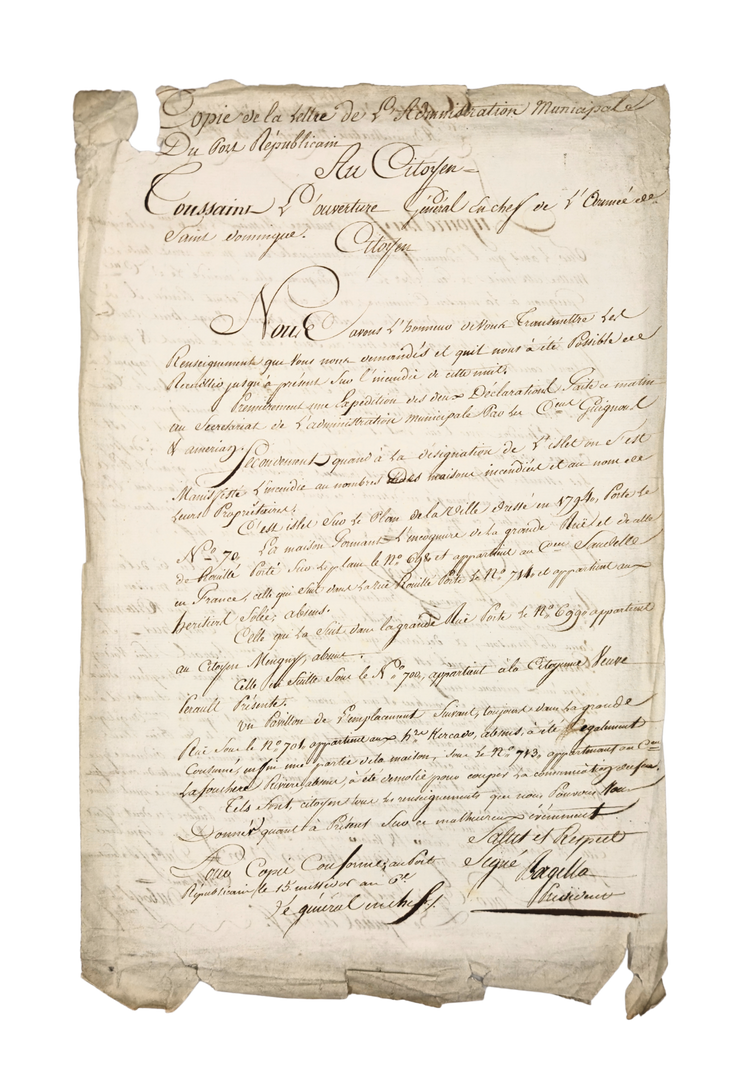 Copie de la Lettre de L'Administration Municipale
Du Port Républicain
Au Citoyen
Toussaint L'ouverture Général En chef de L'Armée de
Saint domingue.
Citoyen
Nous avons L'honneur de vous Transmettre Les
Renseignements que Vous nous demandés et quil nous à été Possible de
Recueillir jusqu'à présent Sur l'incendie de cette nuit.
Premierement une Expédition des deux Déclarations faite ce matin
au Secretariat de L'administration Municipale Par les Cens Guignard
&
Secondement, quant à la désignation de L'islet ou S'est
Manifesté L'incendie au nombre des maisons incendiées et au nom de
Leurs Propriétaires,
C'est islet Sur Le Plan de la Ville dressé en 1794, Porte Le
No. 70. La maison formant L'encognure de la grande Rue et de celle
de Rouillé Porté Sur Le plan le No. 698 et appartient au Cen
en France, celle qui Suit dans La Rue Rouillé Porte Le No. 714, et appartient aux
heritiers absens.
Celle qui La Suit dans la grande Rue Porte Le No. 699, appartient
au Citoyen absent.
Celle en Suitte Sous le No. 700, appartient à la Citoyenne Veuve
Perault Présente.
Un Pavillon de L'emplacement Suivant, toujours dans La grande
Rue Sous le No. 701 appartient aux hers Mercado, absens, à été Egalement
Consumé, enfin une partie de la maison, Sous Le No. 713, appartenant au Cen
La fouchere Riviere absent à été démolie pour couper La communication du feu.
Tels Sont, citoyen tous Les renseignements que nous Pouvons Vous
Donner quant à Présent Sur ce malheureux événement
Salut et Respect
Pour Copie Conforme, au Port Signé
Républicain le 15 messidor an 6e Président
Le général en chef,